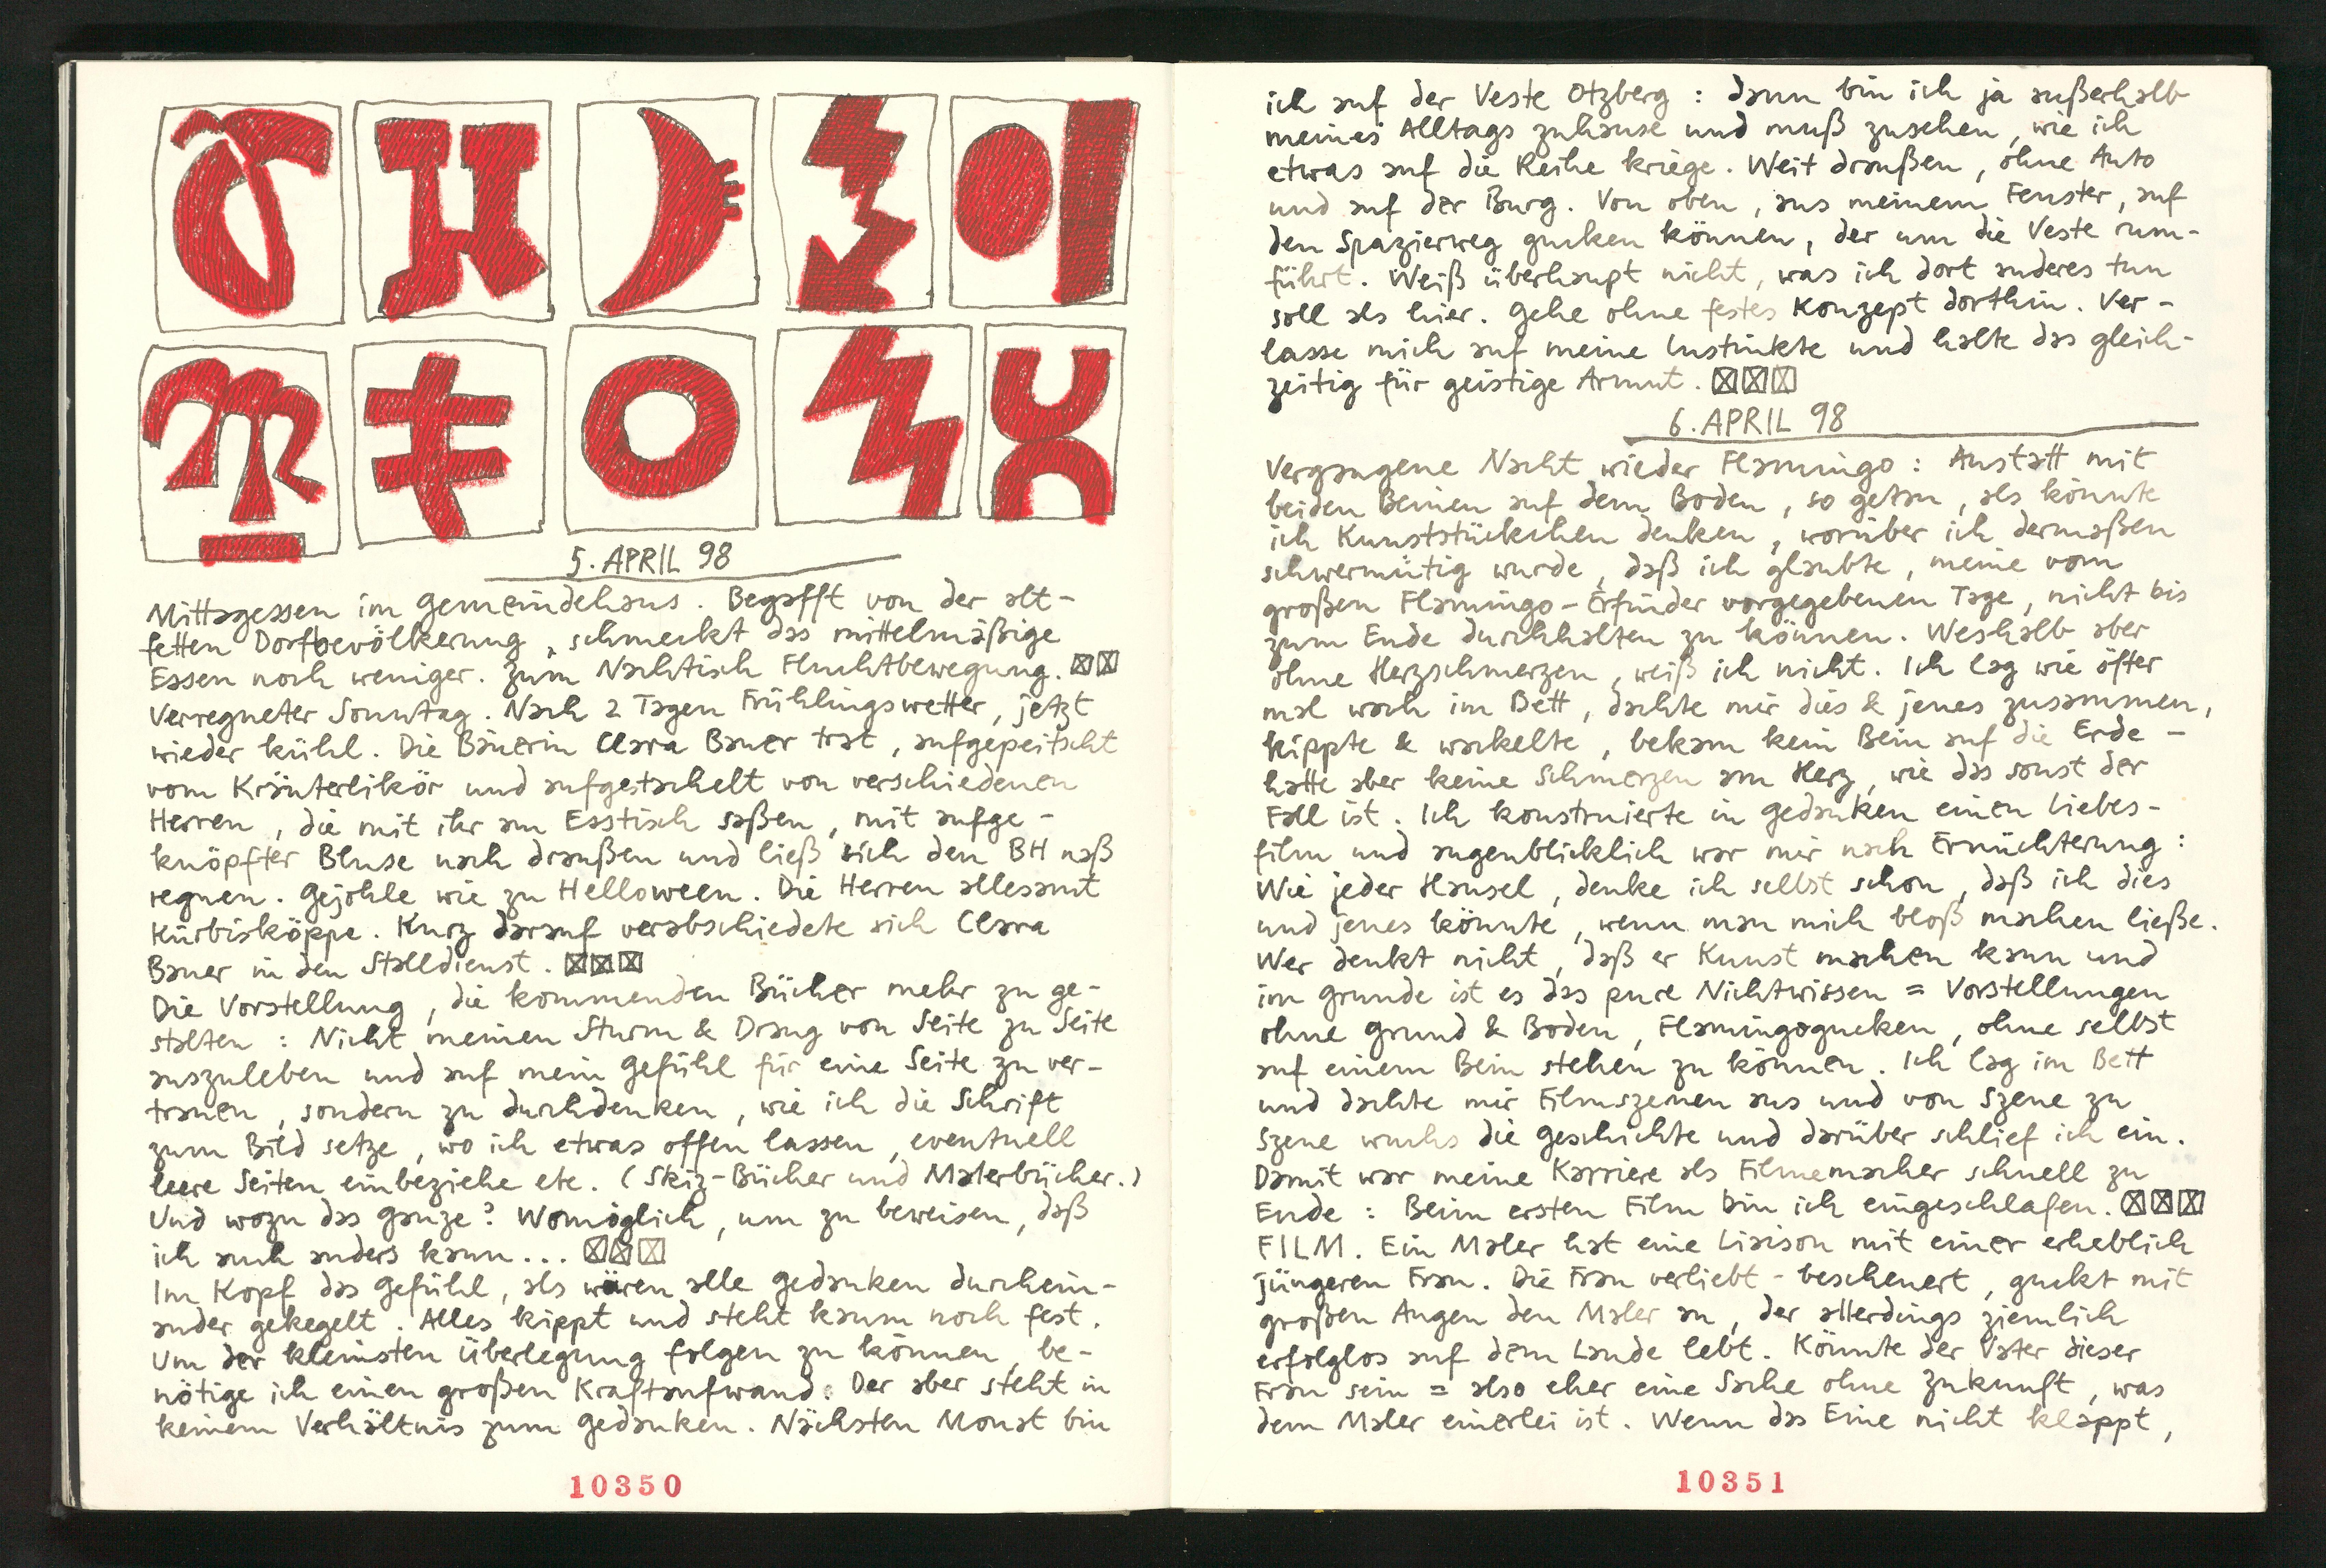 5. APRIL 98
Mittagessen im Gemeindehaus. Begafft von der alt-
fetten Dorfbevölkerung, schmeckt das mittelmäßige
Essen noch weniger. Zum Nachtisch Fluchtbewegung. ☒☒
Verregneter Sonntag. Nach 2 Tagen Frühlingswetter, jetzt
wieder kühl. Die Bäuerin Clara Bauer trat, aufgepeitscht
vom Kräuterlikör und aufgestachelt von verschiedenen
Herren, die mit ihr am Esstisch saßen, mit aufge-
knöpfter Bluse nach draußen und ließ sich den BH naß
regnen. Gejohle wie zu Helloween. Die Herren allesamt
Kürbisköppe. Kurz darauf verabschiedete sich Clara
Bauer in den Stalldienst. ☒☒☒
Die Vorstellung, die kommenden Bücher mehr zu ge-
stalten : Nicht meinen Sturm & Drang von Seite zu Seite
auszuleben und auf mein Gefühl für eine Seite zu ver-
trauen, sondern zu durchdenken, wie ich die Schrift
zum Bild setze, wo ich etwas offen lassen, eventuell
leere Seiten einbeziehe etc. (Skiz-Bücher und Malerbücher.)
Und wozu das ganze? Womöglich, um zu beweisen, daß
ich auch anders kann... ☒☒☒
Im Kopf das Gefühl, als wären alle Gedanken durchein-
ander gekegelt. Alles kippt und steht kaum noch fest.
Um der kleinsten Überlegung folgen zu können, be-
nötige ich einen großen Kraftaufwand. Der aber steht in
keinem Verhältnis zum Gedanken. Nächsten Monat bin
10350
ich auf der Veste Otzberg : dann bin ich ja außerhalb
meines Alltags zuhause und muß zusehen, wie ich
etwas auf die Reihe kriege. Weit draußen, ohne Auto
und auf der Burg. Von oben, aus meinem Fenster, auf
den Spazierweg gucken können, der um die Veste rum-
führt. Weiß überhaupt nicht, was ich dort anderes tun
soll als hier. Gehe ohne festes Konzept dorthin. Ver-
lasse mich auf meine Instinkte und halte das gleich-
zeitig für geistige Armut. ☒☒☒
6. APRIL 98
Vergangene Nacht wieder Flamingo : Anstatt mit
beiden Beinen auf dem Boden, so getan, als könnte
ich Kunststückchen denken, worüber ich dermaßen
schwermütig wurde, daß ich glaubte, meine vom
großen Flamingo-Erfinder vorgegebenen Tage, nicht bis
zum Ende durchhalten zu können. Weshalb aber
ohne Herzschmerzen, weiß ich nicht. Ich lag wie öfter
mal wach im Bett, dachte mir dies & jenes zusammen,
kippte & wackelte, bekam kein Bein auf die Erde -
hatte aber keine Schmerzen am Herz, wie das sonst der
Fall ist. Ich konstruierte in Gedanken einen Liebes-
film und augenblicklich war mir nach Ernüchterung :
Wie jeder Hansel, denke ich selbst schon, daß ich dies
und jenes könnte, wenn man mich bloß machen ließe.
Wer denkt nicht, daß er Kunst machen kann und
im Grunde ist es das pure Nichtwissen = Vorstellungen
ohne Grund & Boden, Flamingogucken, ohne selbst
auf einem Bein stehen zu können. Ich lag im Bett
und dachte mir Filmszenen aus und von Szene zu
Szene wuchs die Geschichte und darüber schlief ich ein.
Damit war meine Karriere als Filmemacher schnell zu
Ende : Beim ersten Film bin ich eingeschlafen. ☒☒☒
FILM. Ein Maler hat eine Liaison mit einer erheblich
jüngeren Frau. Die Frau verliebt-bescheuert, guckt mit
großen Augen den Maler an, der allerdings ziemlich
erfolglos auf dem Lande lebt. Könnte der Vater dieser
Frau sein = also eher eine Sache ohne Zukunft, was
dem Maler einerlei ist. Wenn das Eine nicht klappt,
10351